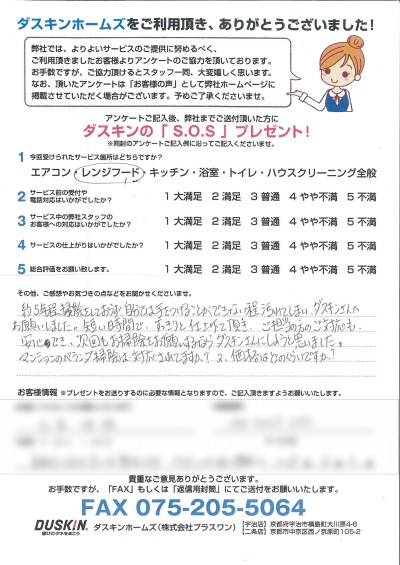 ダスキンホームズをご利用頂き、ありがとうございました!
弊社では、よりよいサービスのご提供に努めるべく、
ご利用頂きましたお客様よりアンケートのご協力を頂いております。
お手数ですが、ご協力頂けるとスタッフ一同、大変嬉しく思います。
なお、頂いたアンケートは「お客様の声」として弊社ホームページに
掲載させていただく場合がございます。予めご了承くださいませ。
アンケートご記入後、弊社までご送付頂いた方に
ダスキンの「S.O.S」プレゼント!
※同封のアンケートご記入例に沿ってご記入くださいませ。
1 今回受けられたサービス箇所はどちらですか?
エアコン・レンジフード・キッチン・浴室・トイレ・ハウスクリーニング全般
2 サービス前の受付や
電話対応はいかがでしたか? 1 大満足 2 満足 3 普通 4 やや不満 5 不満
3 サービス中の弊社スタッフの
お客様への対応はいかがでしたか? 1 大満足 2 満足 3 普通 4 やや不満 5 不満
4 サービスの仕上がりはいかがでしたか? 1 大満足 2 満足 3 普通 4 やや不満 5 不満
5 総合評価をお願い致します。 1 大満足 2 満足 3 普通 4 やや不満 5 不満
その他、ご感想やお気づきの点などをお聞かせくださいませ。
約5年程掃除をしておらず、自分では手をつけることができない程汚れてしまい、ダスキンさんへ
お願いしました。短い時間で、すっきりと仕上げて頂き、ご担当の方のご対応も
安心でき、次回もお掃除をお願いするならダスキンさんにしようと思いました。
マンションのベランダ掃除は対応されてますか?又、価格はどのくらいですか?
お客様情報 ※プレゼントをお送りするのに必要な情報となりますので、ご記入頂きますようお願いいたします。
貴重なご意見ありがとうございます。
お手数ですが、「FAX」もしくは「返信用封筒」にてご送付をお願いいたします。
FAX 075-205-5064
DUSKIN
喜びのタネをまこう
ダスキンホームズ(株式会社プラスワン)
【宇治店】京都府宇治市槇島町大川原4-6
【二条店】京都市中京区西ノ京原町105-2